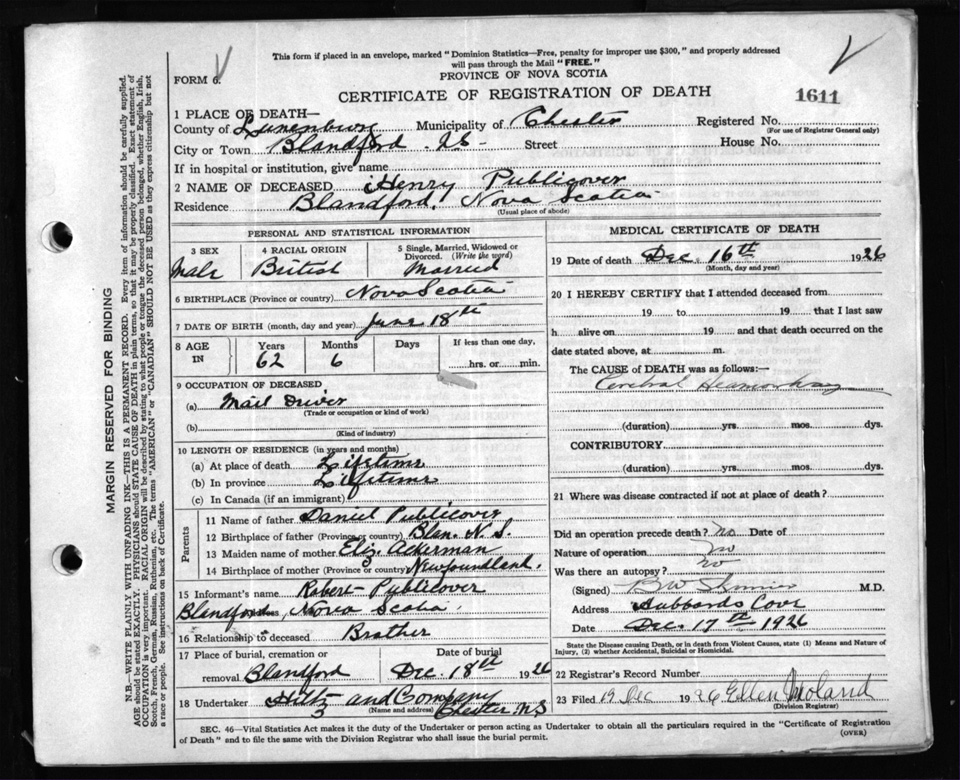 This form if placed in an envelope, marked "Dominion Statistics—Free, penalty for improper use $300," and properly addressed
will pass through the Mail "FREE."
PROVINCE OF NOVA SCOTIA
FORM 6.
CERTIFICATE OF REGISTRATION OF DEATH
1611
1 PLACE OF DEATH—
County of Lunenburg Municipality of Chester Registered No.
(For use of Registrar General only)
City or Town Blandford N.S. Street House No.
If in hospital or institution, give name
2 NAME OF DECEASED Henry Publicover
Residence Blandford, Nova Scotia
(Usual place of abode)
PERSONAL AND STATISTICAL INFORMATION
3 SEX 4 RACIAL ORIGIN 5 Single, Married, Widowed or
Divorced. (Write the word)
Male British Married
6 BIRTHPLACE (Province or country) Nova Scotia
7 DATE OF BIRTH (month, day and year) June 18th
8 AGE IN Years Months Days If less than one day,
62 6 hrs. or min.
9 OCCUPATION OF DECEASED
(a) Mail Driver
(Trade or occupation or kind of work)
(b)
(Kind of industry)
10 LENGTH OF RESIDENCE (in years and months)
(a) At place of death Lifetime
(b) In province Lifetime
(c) In Canada (if an immigrant)
Parents
11 Name of father Daniel Publicover
12 Birthplace of father (Province or country) Blan. N.S.
13 Maiden name of mother Eliz Ackerman
14 Birthplace of mother (Province or country) Newfoundland.
15 Informant's name Robert Publicover
Blandford, Nova Scotia.
16 Relationship to deceased Brother
17 Place of burial, cremation or Date of burial
removal Blandford Dec. 18th 1926
18 Undertaker Hiltz and Company
(Name and address) Chester N.S
MEDICAL CERTIFICATE OF DEATH
19 Date of death Dec. 16th 1926
(Month, day and year)
20 I HEREBY CERTIFY that I attended deceased from
19 to 19 that I last saw
h alive on 19 and that death occurred on the
date stated above, at m.
The CAUSE of DEATH was as follows:—
Cerebral Heamorrhage
(duration) yrs. mos. dys.
CONTRIBUTORY
(duration) yrs. mos. dys.
21 Where was disease contracted if not at place of death?
Did an operation precede death? no Date of
Nature of operation no
Was there an autopsy? no
(Signed) B W M.D.
Address Hubbards Cove
Date Dec. 17th 1926
State the Disease causing Death, or in death from Violent Causes, state (1) Means and Nature of
Injury, (2) whether Accidental, Suicidal or Homicidal.
22 Registrar's Record Number
23 Filed 19 Dec 1926 Ellen
(Division Registrar)
SEC. 46—Vital Statistics Act makes it the duty of the Undertaker or person acting as Undertaker to obtain all the particulars required in the "Certificate of Registration
of Death" and to file the same with the Division Registrar who shall issue the burial permit.
(OVER)
MARGIN RESERVED FOR BINDING
N.B.—WRITE PLAINLY WITH UNFADING INK—THIS IS A PERMANENT RECORD. Every item of information should be carefully supplied.
AGE should be stated EXACTLY. PHYSICIANS should STATE CAUSE OF DEATH in plain terms, so that it may be properly classified. Exact statement of
OCCUPATION is very important. RACIAL ORIGIN will be described by stating to what people or tongue the deceased person belonged, whether English, Irish,
Scotch, French, German, Russian, Ruthenian, etc. The terms "AMERICAN" or "CANADIAN" SHOULD NOT BE USED as they express citizenship but not
a race or people. See instructions on back of Certificate.